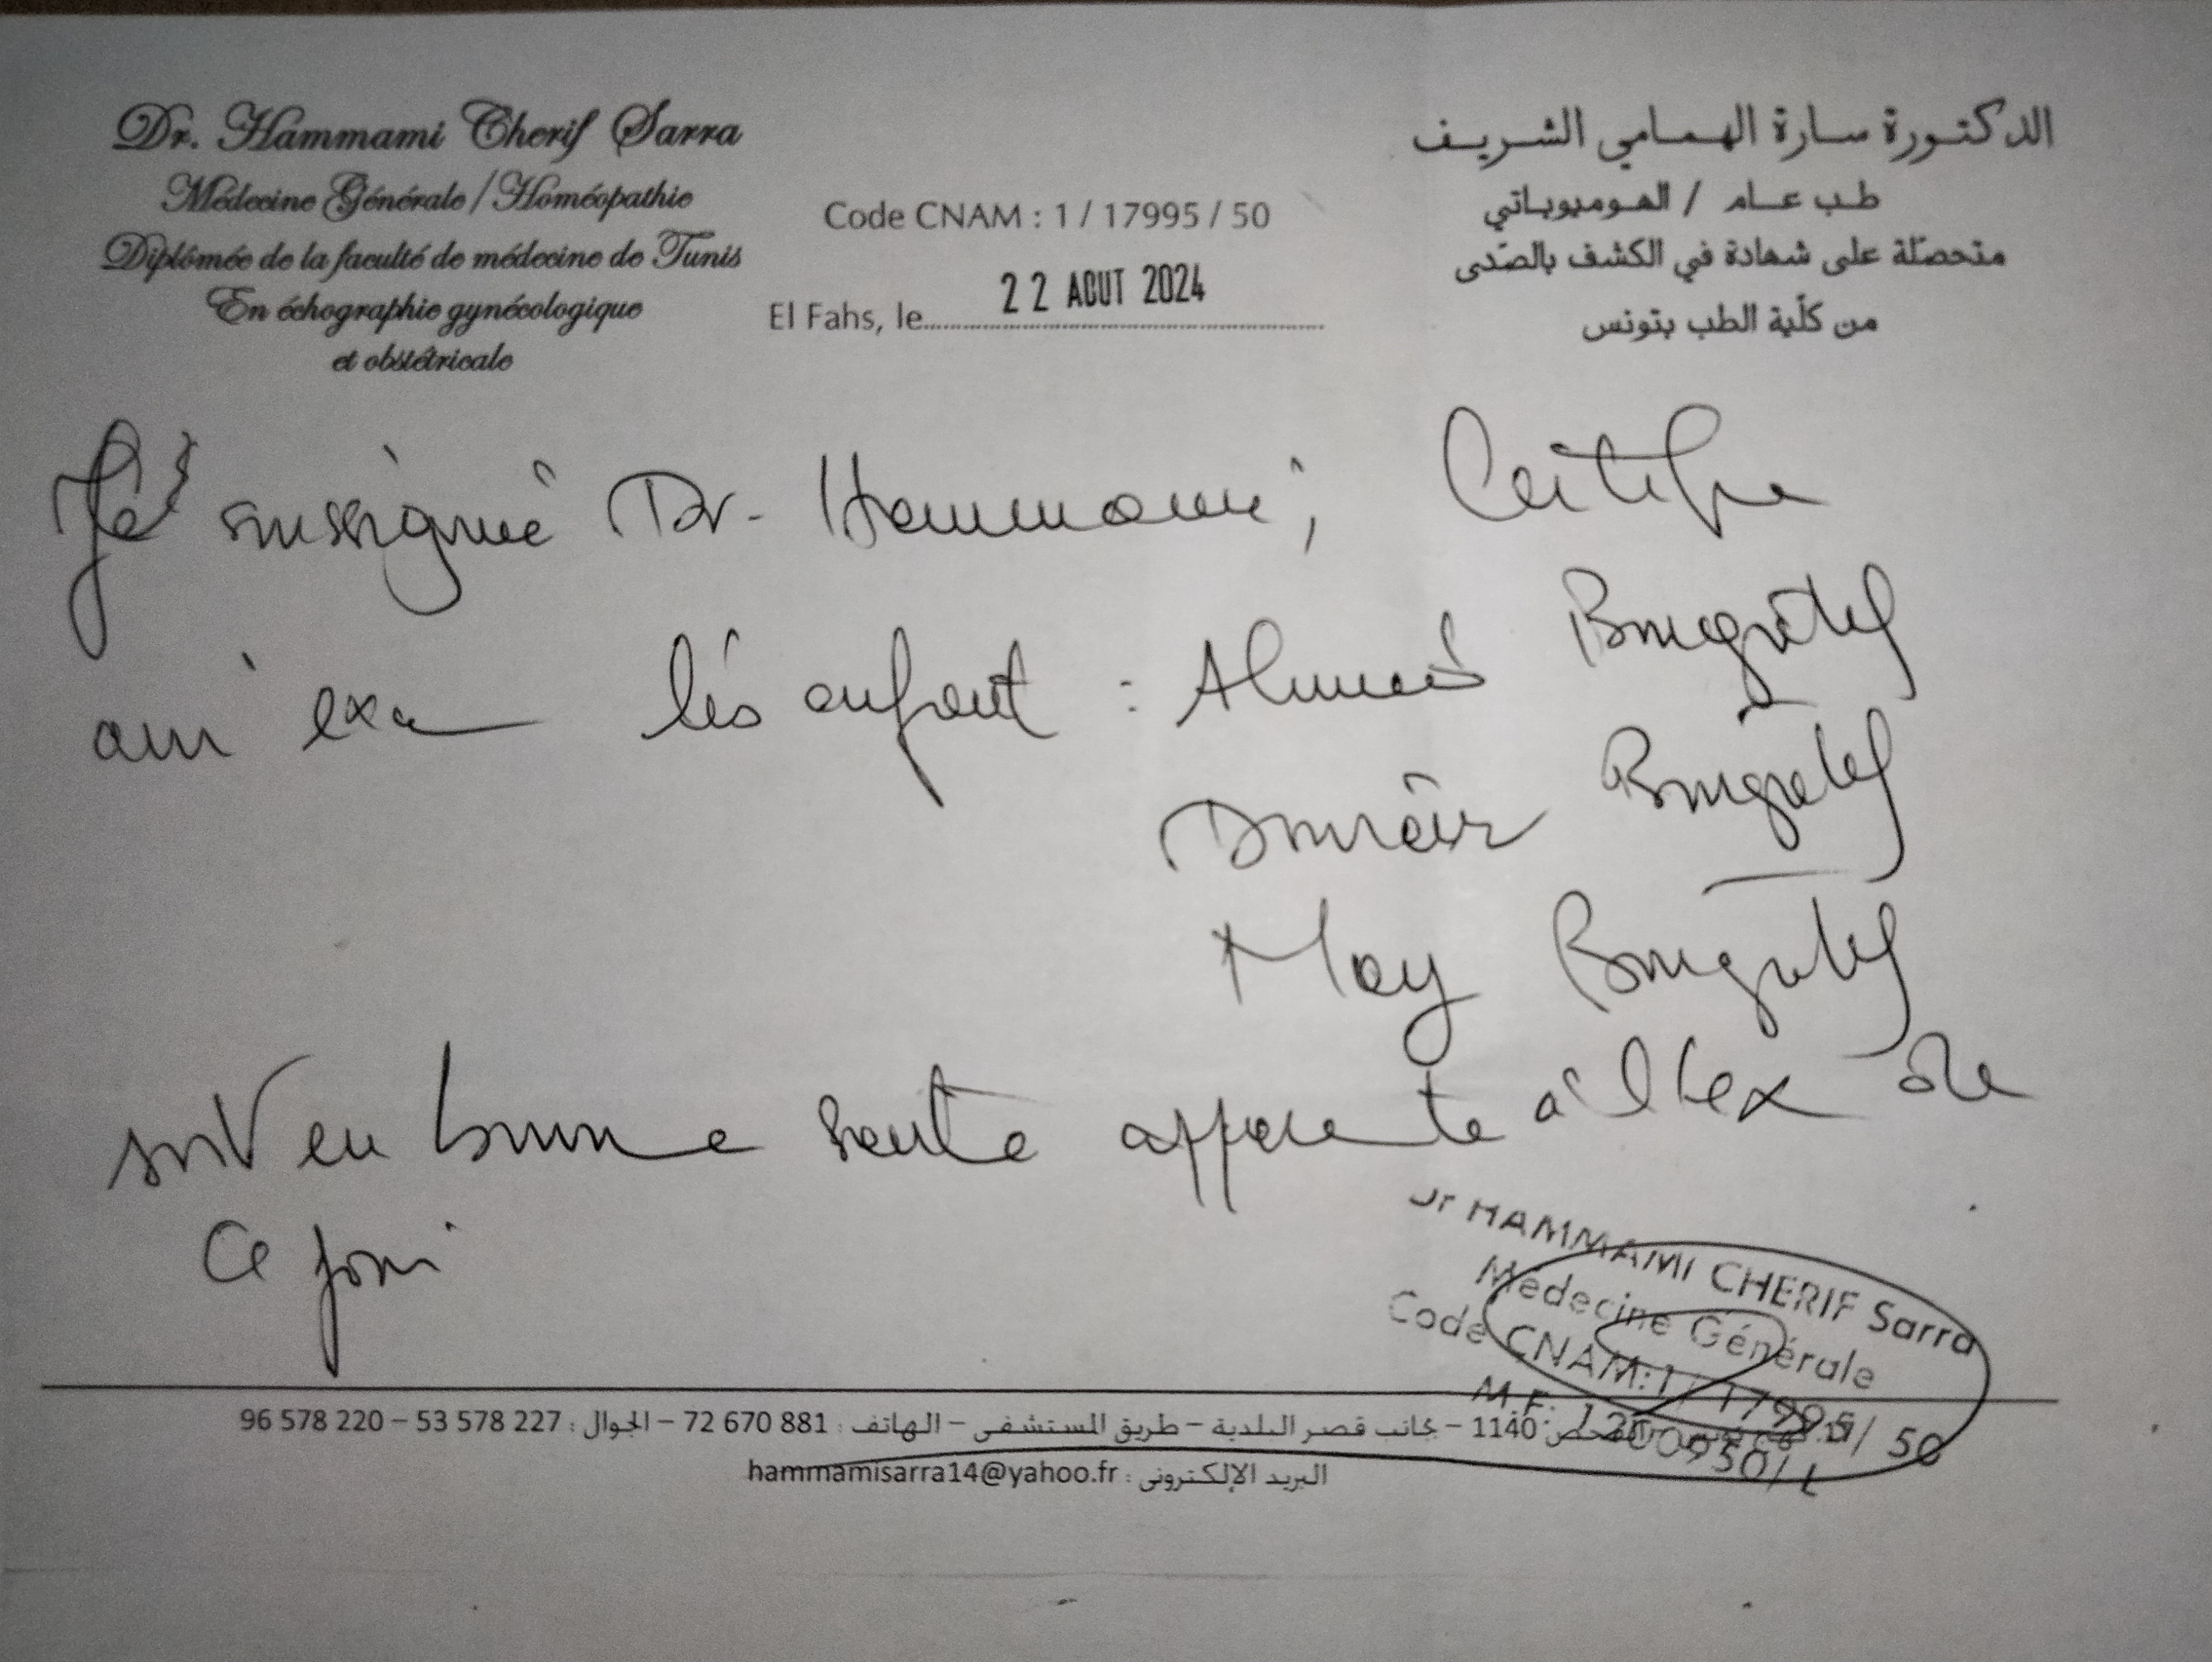 Dr. Hammami Cherif Sarra
Médecine Générale/Homéopathie
Diplômée de la faculté de médecine de Tunis
En échographie gynécologique
et obstétricale
Code CNAM : 1 / 17995 / 50
El Fahs, le 22 AOUT 2024
الدكتورة سارة الهمامي الشريف
طب عام / الهوميوباتي
متحصّلة على شهادة في الكشف بالصّدى
من كلّية الطب بتونس
Je soussignée Dr. Hammami, Certifie
avoir exa les enfant : Ahmed
May
sont en bonne santé apparente à l'ex de
Ce jour
Dr HAMMAMI CHERIF Sarra
Médecine Générale
Code CNAM:1/17995/50
M.F:
1140 – بجانب قصر البلدية – طريق المستشفى – الهاتف : 72 670 881 – الجوال : 53 578 227 – 96 578 220
البريد الإلكتروني : hammamisarra14@yahoo.fr